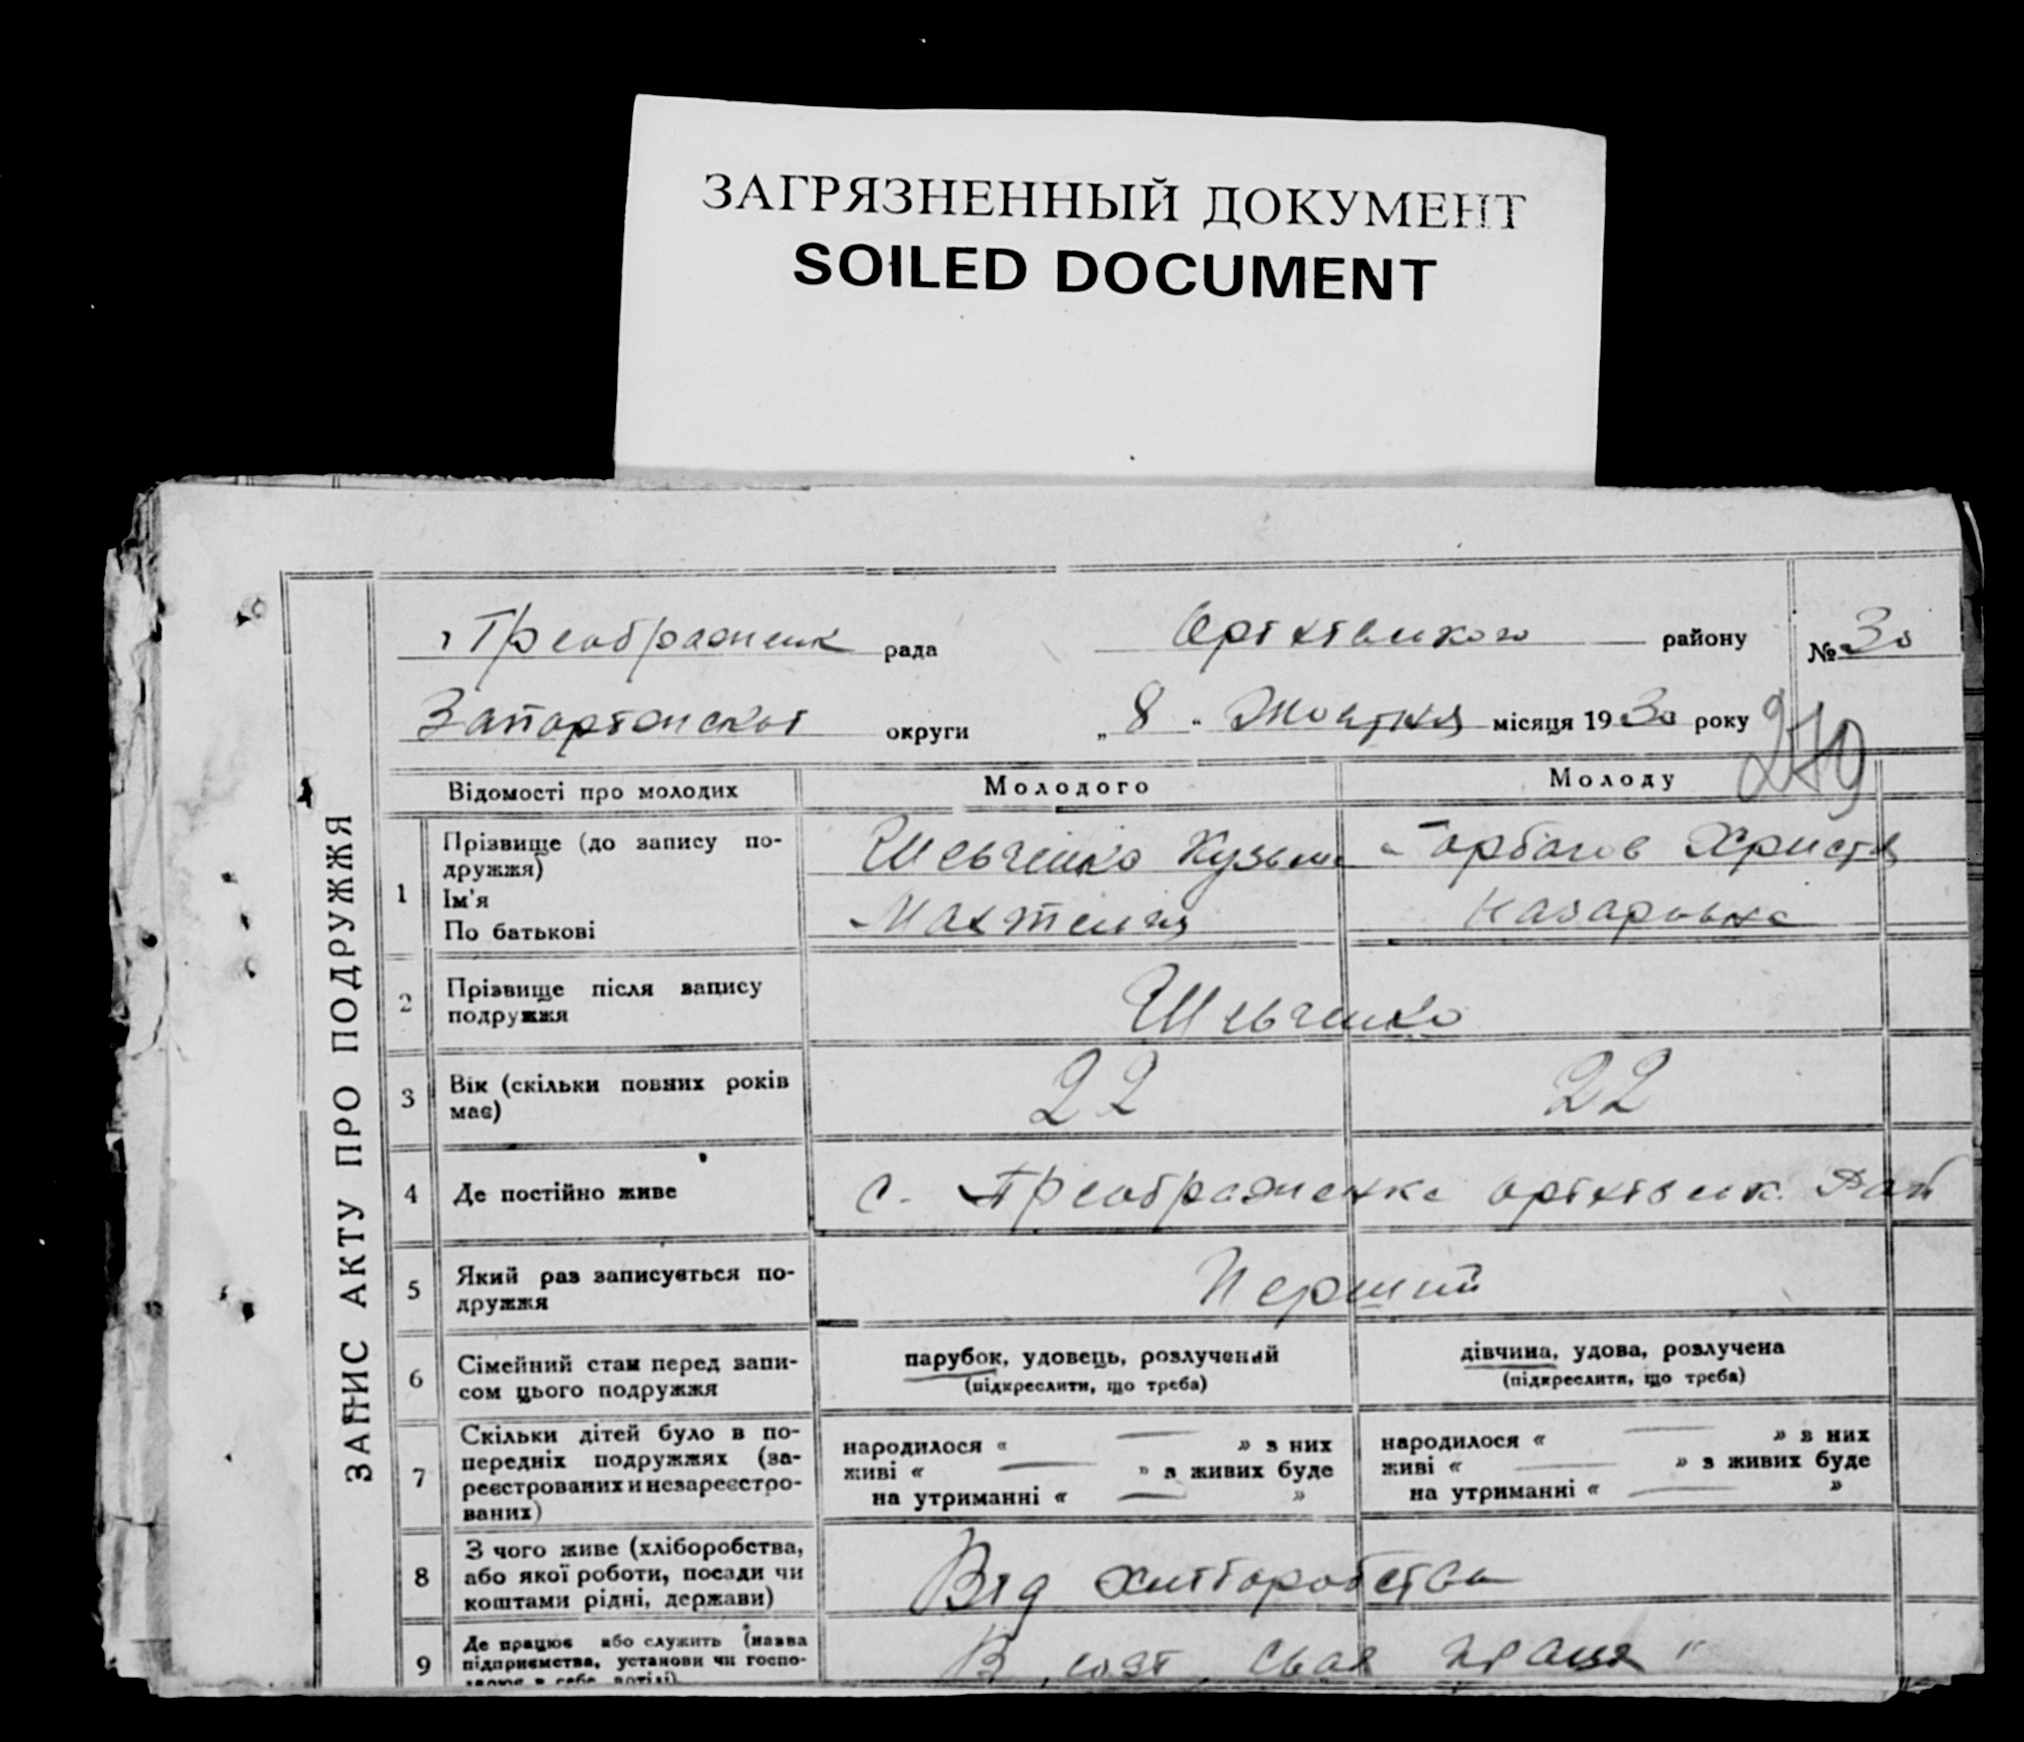 ЗАГРЯЗНЕННЫЙ ДОКУМЕНТ
SOILED DOCUMENT
ЗАПИС АКТУ ПРО ПОДРУЖЖЯ
Преображенськ рада району № 30
округи „ 8 “ Жовтня місяця 1930 року
Відомості про молодих Молодого Молоду
1 Прізвище (до запису по-
дружжя)
Ім'я
По батькові
Шевченко Кузьма
Христя
Назаровна
2 Прізвище після запису
подружжя
Шевченко
3 Вік (скільки повних років
має)
22 22
4 Де постійно живе с. Преображенка
5 Який раз записується по-
дружжя
Перший
6 Сімейний стан перед запи-
сом цього подружжя
парубок, удовець, розлучений
(підкреслити, що треба)
дівчина, удова, розлучена
(підкреслити, що треба)
7 Скільки дітей було в по-
передніх подружжях (за-
реєстрованих и незареєстро-
ваних)
народилося « — » з них
живі « — » з живих буде
на утриманні « — »
народилося « — » з них
живі « — » з живих буде
на утриманні « — »
8 З чого живе (хліборобства,
або якої роботи, посади чи
коштами рідні, держави)
Від хліборобства
9 Де працює або служить (назва
підприємства, установи чи госпо-
В праця "